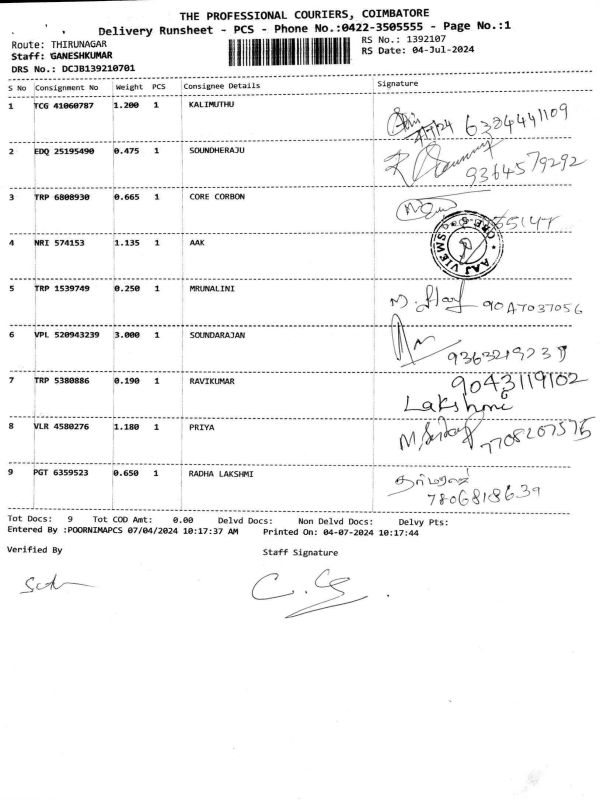 THE PROFESSIONAL COURIERS, COIMBATORE
Delivery Runsheet - PCS - Phone No.:0422-3505555 - Page No.:1
Route: THIRUNAGAR
RS No.: 1392107
Staff: GANESHKUMAR
RS Date: 04-Jul-2024
DRS No.: DCJB139210701
S No Consignment No Weight PCS Consignee Details Signature
1 TCG 41060787 1.200 1 KALIMUTHU
6384441109
2 EDQ 25195490 0.475 1 SOUNDHERAJU
9364579292
3 TRP 6808930 0.665 1 CORE CORBON
4 NRI 574153 1.135 1 AAK
5 TRP 1539749 0.250 1 MRUNALINI
6 VPL 520943239 3.000 1 SOUNDARAJAN
7 TRP 5380886 0.190 1 RAVIKUMAR
9043119102
Lakshmi
8 VLR 4580276 1.180 1 PRIYA
7708207575
9 PGT 6359523 0.650 1 RADHA LAKSHMI
7806818639
Tot Docs: 9 Tot COD Amt: 0.00 Delvd Docs: Non Delvd Docs: Delvy Pts:
Entered By :POORNIMAPCS 07/04/2024 10:17:37 AM Printed On: 04-07-2024 10:17:44
Verified By
Staff Signature